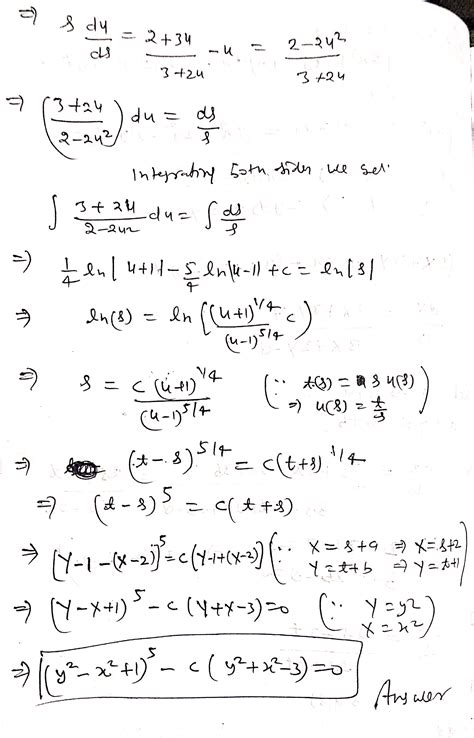 ⇒ s du/ds = (2+3u)/(3+2u) - u = (2-2u²)/(3+2u)
⇒ ((3+2u)/(2-2u²)) du = ds/s
Integrating both sides we get.
∫ (3+2u)/(2-2u²) du = ∫ ds/s
⇒ 1/4 ln|u+1| - 5/4 ln|u-1| + c = ln|s|
⇒ ln(s) = ln((u+1)^1/4 / (u-1)^5/4 c)
⇒ s = c (u+1)^1/4 / (u-1)^5/4 (∵ t(s) = s u(s) ⇒ u(s) = t/s)
⇒ (t-s)^5/4 = c(t+s)^1/4
⇒ (t-s)^5 = c(t+s)
⇒ [Y-1-(X-2)]^5 = c[Y-1+(X-2)] (∵ X = s+a ⇒ X=s+2 Y = t+b ⇒ Y=t+1)
⇒ (Y-X+1)^5 - c(Y+X-3)=0 (∵ Y=y² X=x²)
⇒ (y²-x²+1)^5 - c(y²+x²-3)=0
Answer